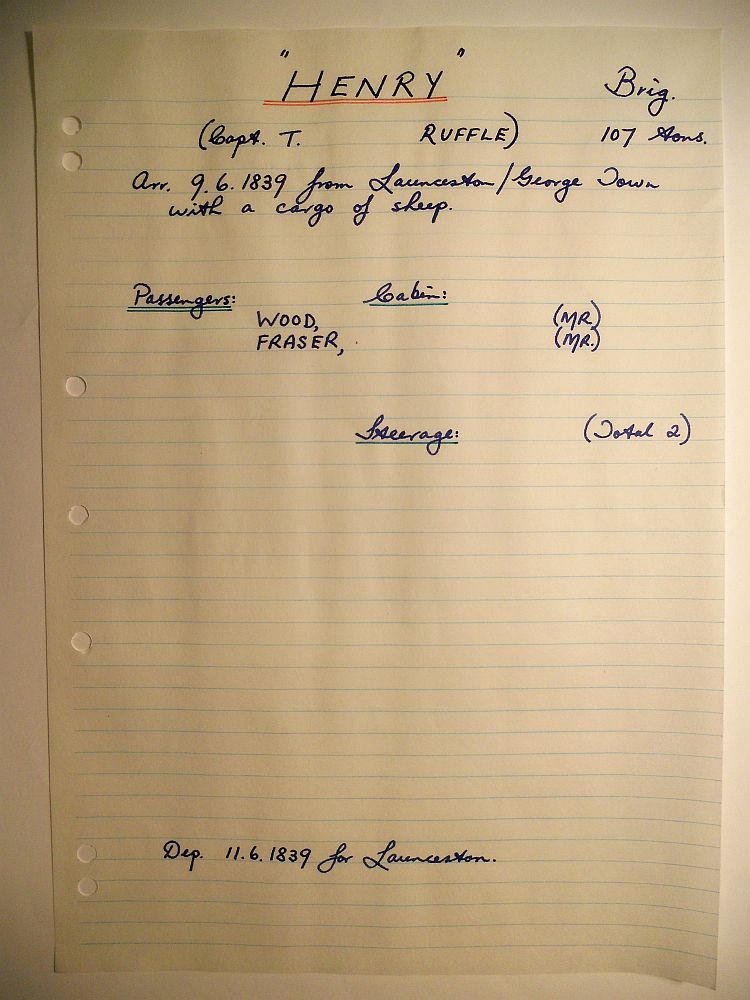 "HENRY" Brig.
(Capt. T. RUFFLE) 107 tons.
Arr. 9.6.1839 from Launceston/George Town
with a cargo of sheep.
Passengers: Cabin:
WOOD, (MR)
FRASER, (MR.)
Steerage: (Total 2)
Dep. 11.6.1839 for Launceston.